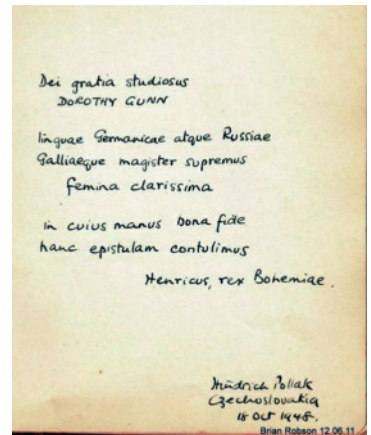 Dei gratia studiosus
DOROTHY GUNN
linguae Germanicae atque Russiae
Galliaeque magister supremus
femina clarissima
in cuius manus bona fide
hanc epistulam contulimus
Henricus, rex Bohemiae.
Jindrich Pollak
Czechoslovakia
18 Oct 1948.
Brian Robson 12.06.11